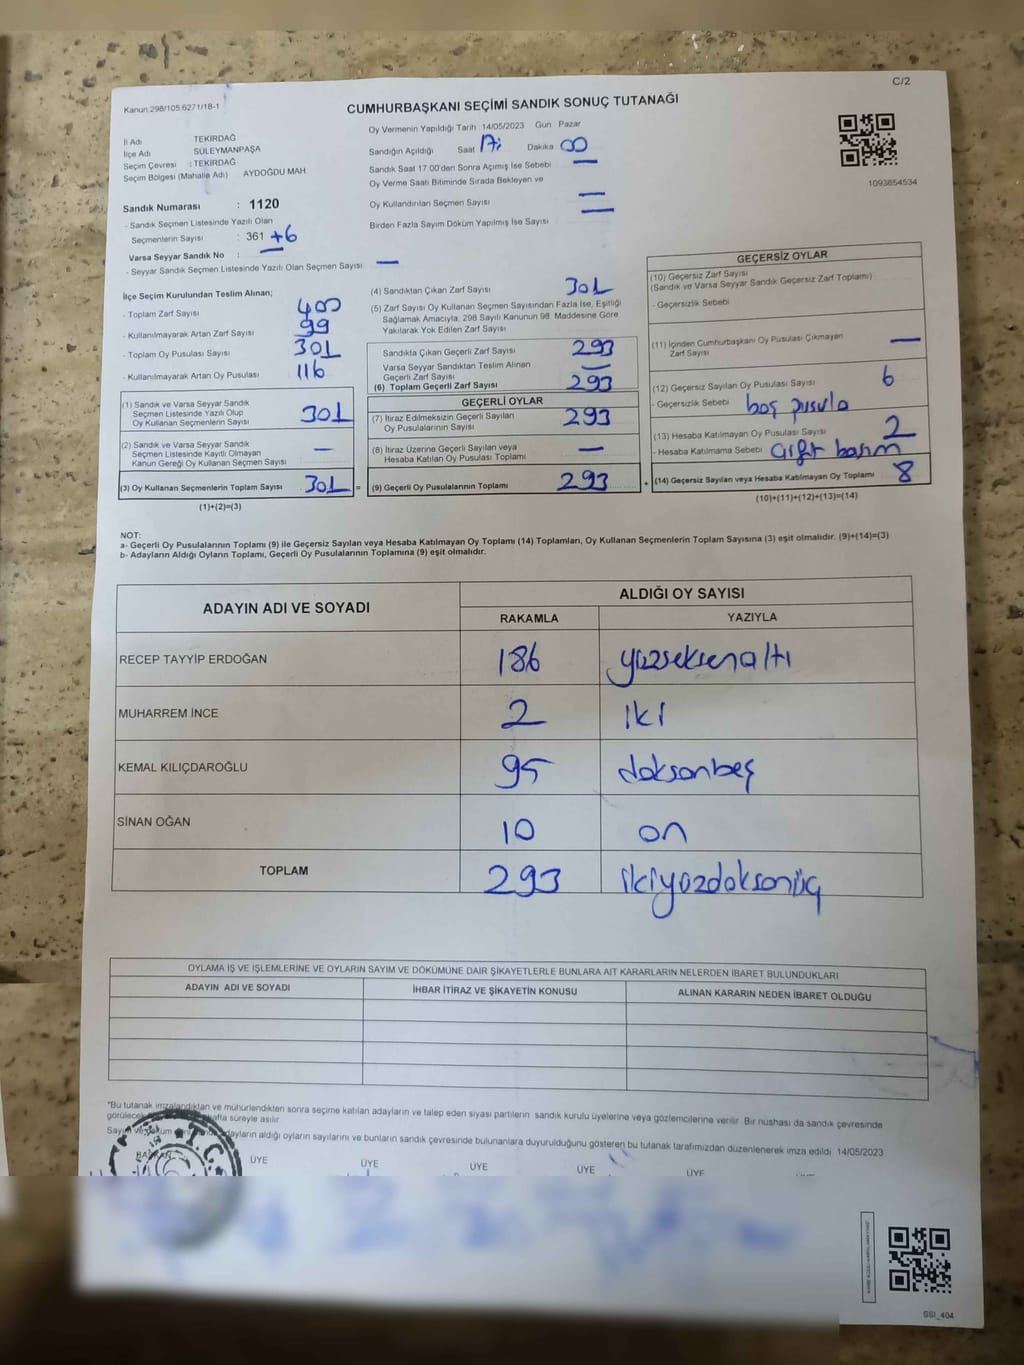 C/2
Kanun 298/105.6271/18-1
CUMHURBAŞKANI SEÇİMİ SANDIK SONUÇ TUTANAĞI
İl Adı TEKİRDAĞ
İlçe Adı SÜLEYMANPAŞA
Seçim Çevresi : TEKİRDAĞ
Seçim Bölgesi (Mahalle Adı) AYDOĞDU MAH.
Oy Vermenin Yapıldığı Tarih 14/05/2023 Gün Pazar
Sandığın Açıldığı Saat 17: Dakika 00
Sandık Saat 17:00'den Sonra Açımış İse Sebebi —
Oy Verme Saati Bitiminde Sırada Bekleyen ve
Oy Kullandırılan Seçmen Sayısı —
Birden Fazla Sayım Döküm Yapılmış İse Sayısı —
1093854534
Sandık Numarası : 1120
- Sandık Seçmen Listesinde Yazılı Olan
Seçmenlerin Sayısı : 361 +6
Varsa Seyyar Sandık No : —
- Seyyar Sandık Seçmen Listesinde Yazılı Olan Seçmen Sayısı —
İlçe Seçim Kurulundan Teslim Alınan;
- Toplam Zarf Sayısı 400
- Kullanılmayarak Artan Zarf Sayısı 99
- Toplam Oy Pusulası Sayısı 301
- Kullanılmayarak Artan Oy Pusulası 116
(1) Sandık ve Varsa Seyyar Sandık
Seçmen Listesinde Yazılı Olup
Oy Kullanan Seçmenlerin Sayısı 301
(2) Sandık ve Varsa Seyyar Sandık
Seçmen Listesinde Kayıtlı Olmayan
Kanun Gereği Oy Kullanan Seçmen Sayısı —
(3) Oy Kullanan Seçmenlerin Toplam Sayısı 301 =
(1)+(2)=(3)
(4) Sandıktan Çıkan Zarf Sayısı 301
(5) Zarf Sayısı Oy Kullanan Seçmen Sayısından Fazla İse, Eşitliği
Sağlamak Amacıyla, 298 Sayılı Kanunun 98. Maddesine Göre
Yakılarak Yok Edilen Zarf Sayısı
Sandıkta Çıkan Geçerli Zarf Sayısı 293
Varsa Seyyar Sandıktan Teslim Alınan
Geçerli Zarf Sayısı —
(6) Toplam Geçerli Zarf Sayısı 293
GEÇERLİ OYLAR
(7) İtiraz Edilmeksizin Geçerli Sayılan
Oy Pusulalarının Sayısı 293
(8) İtiraz Üzerine Geçerli Sayılan veya
Hesaba Katılan Oy Pusulası Toplamı —
(9) Geçerli Oy Pusulalarının Toplamı 293 +
GEÇERSİZ OYLAR
(10) Geçersiz Zarf Sayısı
(Sandık ve Varsa Seyyar Sandık Geçersiz Zarf Toplamı)
- Geçersizlik Sebebi
(11) İçinden Cumhurbaşkanı Oy Pusulası Çıkmayan
Zarf Sayısı —
(12) Geçersiz Sayılan Oy Pusulası Sayısı 6
- Geçersizlik Sebebi boş pusula
(13) Hesaba Katılmayan Oy Pusulası Sayısı 2
- Hesaba Katılmama Sebebi Çift basım
(14) Geçersiz Sayılan veya Hesaba Katılmayan Oy Toplamı 8
(10)+(11)+(12)+(13)=(14)
NOT:
a- Geçerli Oy Pusulalarının Toplamı (9) ile Geçersiz Sayılan veya Hesaba Katılmayan Oy Toplamı (14) Toplamları, Oy Kullanan Seçmenlerin Toplam Sayısına (3) eşit olmalıdır. (9)+(14)=(3)
b- Adayların Aldığı Oyların Toplamı, Geçerli Oy Pusulalarının Toplamına (9) eşit olmalıdır.
ADAYIN ADI VE SOYADI
ALDIĞI OY SAYISI
RAKAMLA YAZIYLA
RECEP TAYYİP ERDOĞAN 186 yüzseksenaltı
MUHARREM İNCE 2 iki
KEMAL KILIÇDAROĞLU 95 doksanbeş
SİNAN OĞAN 10 on
TOPLAM 293 ikiyüzdoksanüç
OYLAMA İŞ VE İŞLEMLERİNE VE OYLARIN SAYIM VE DÖKÜMÜNE DAİR ŞİKAYETLERLE BUNLARA AİT KARARLARIN NELERDEN İBARET BULUNDUKLARI
ADAYIN ADI VE SOYADI İHBAR İTİRAZ VE ŞİKAYETİN KONUSU ALINAN KARARIN NEDEN İBARET OLDUĞU
*Bu tutanak imzalandıktan ve mühürlendikten sonra seçime katılan adayların ve talep eden siyasi partilerin sandık kurulu üyelerine veya gözlemcilerine verilir. Bir nüshası da sandık çevresinde
görülecek hafta süreyle asılır
Sayım ve döküm adayların aldığı oyların sayılarını ve bunların sandık çevresinde bulunanlara duyurulduğunu gösteren bu tutanak tarafımızdan düzenlenerek imza edildi. 14/05/2023
ÜYE ÜYE ÜYE ÜYE ÜYE
T.C.
GSI_404